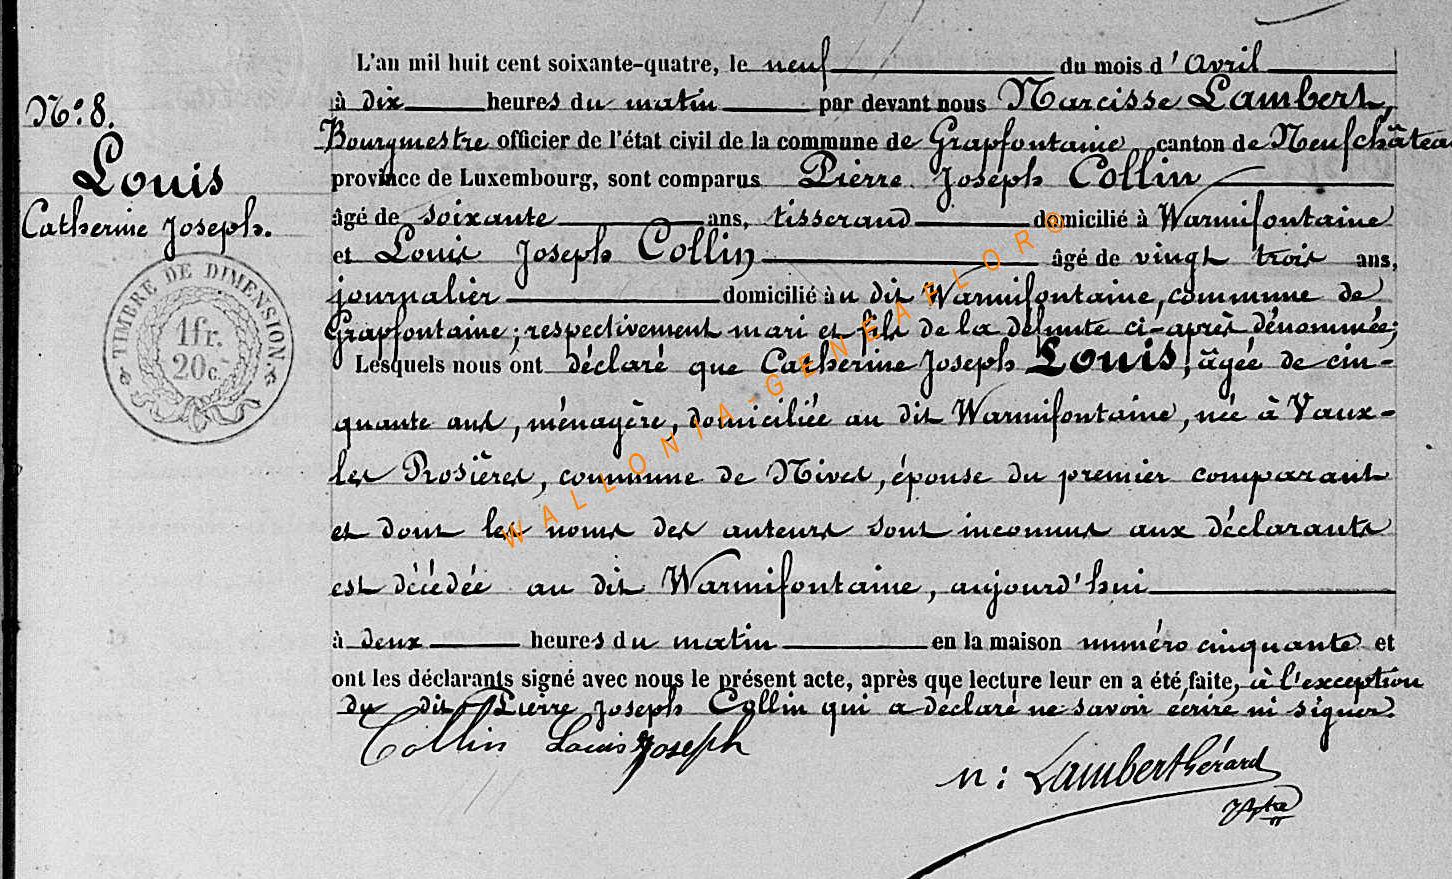 L'an mil huit cent soixante-quatre, le neuf du mois d'Avril
à dix heures du matin par devant nous Narcisse Lambert,
Bourgmestre officier de l'état civil de la commune de Grapfontaine canton de Neufchâteau
province de Luxembourg, sont comparus Pierre Joseph Collin
âgé de soixante ans, tisserand domicilié à Warmifontaine
et Louis Joseph Collin âgé de vingt trois ans,
journalier domicilié au dit Warmifontaine, commune de
Grapfontaine; respectivement mari et fils de la défunte ci-après dénommée;
Lesquels nous ont déclaré que Catherine Joseph Louis, âgée de cin-
quante ans, ménagère, domiciliée au dit Warmifontaine, née à Vaux-
les Rosières, commune de Nives, épouse du premier comparant
et dont les noms des auteurs sont inconnus aux déclarants
est décédée au dit Warmifontaine, aujourd'hui
à deux heures du matin en la maison numéro cinquante et
ont les déclarants signé avec nous le présent acte, après que lecture leur en a été faite, à l'exception
du dit Pierre Joseph Collin qui a declaré ne savoir écrire ni signer.
Collin Louis Joseph
N: Lambert Gérard
N°: 8.
Louis
Catherine Joseph.
TIMBRE DE DIMENSION
1 fr.
20 c.
WALLONIA-GENEALLOR©